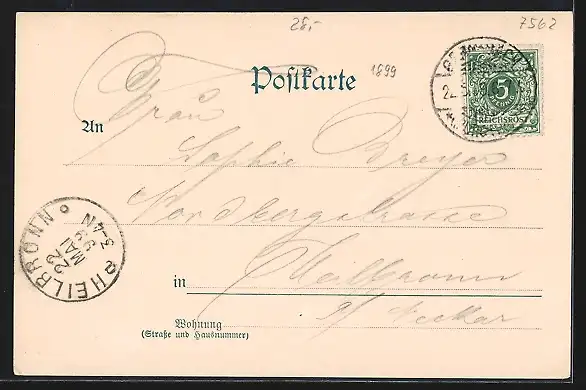 28,- 7562
Postkarte 1899
5
REICHSPOST
An Frau
Sophie Breyer
Nordbergstrasse
in Heilbronn
a/ Neckar
Wohnung
(Straße und Hausnummer)
HEILBRONN
22
MAI
99
3-4N